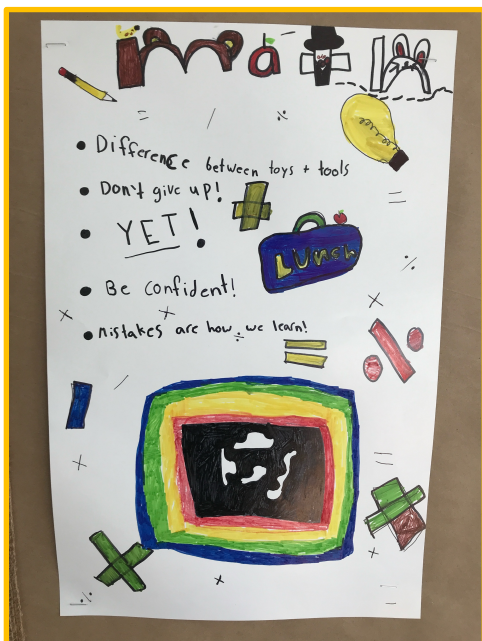 math
• Difference between toys + tools
• Don't give up!
• YET!
LUNCH
• Be confident!
• Mistakes are how we learn!